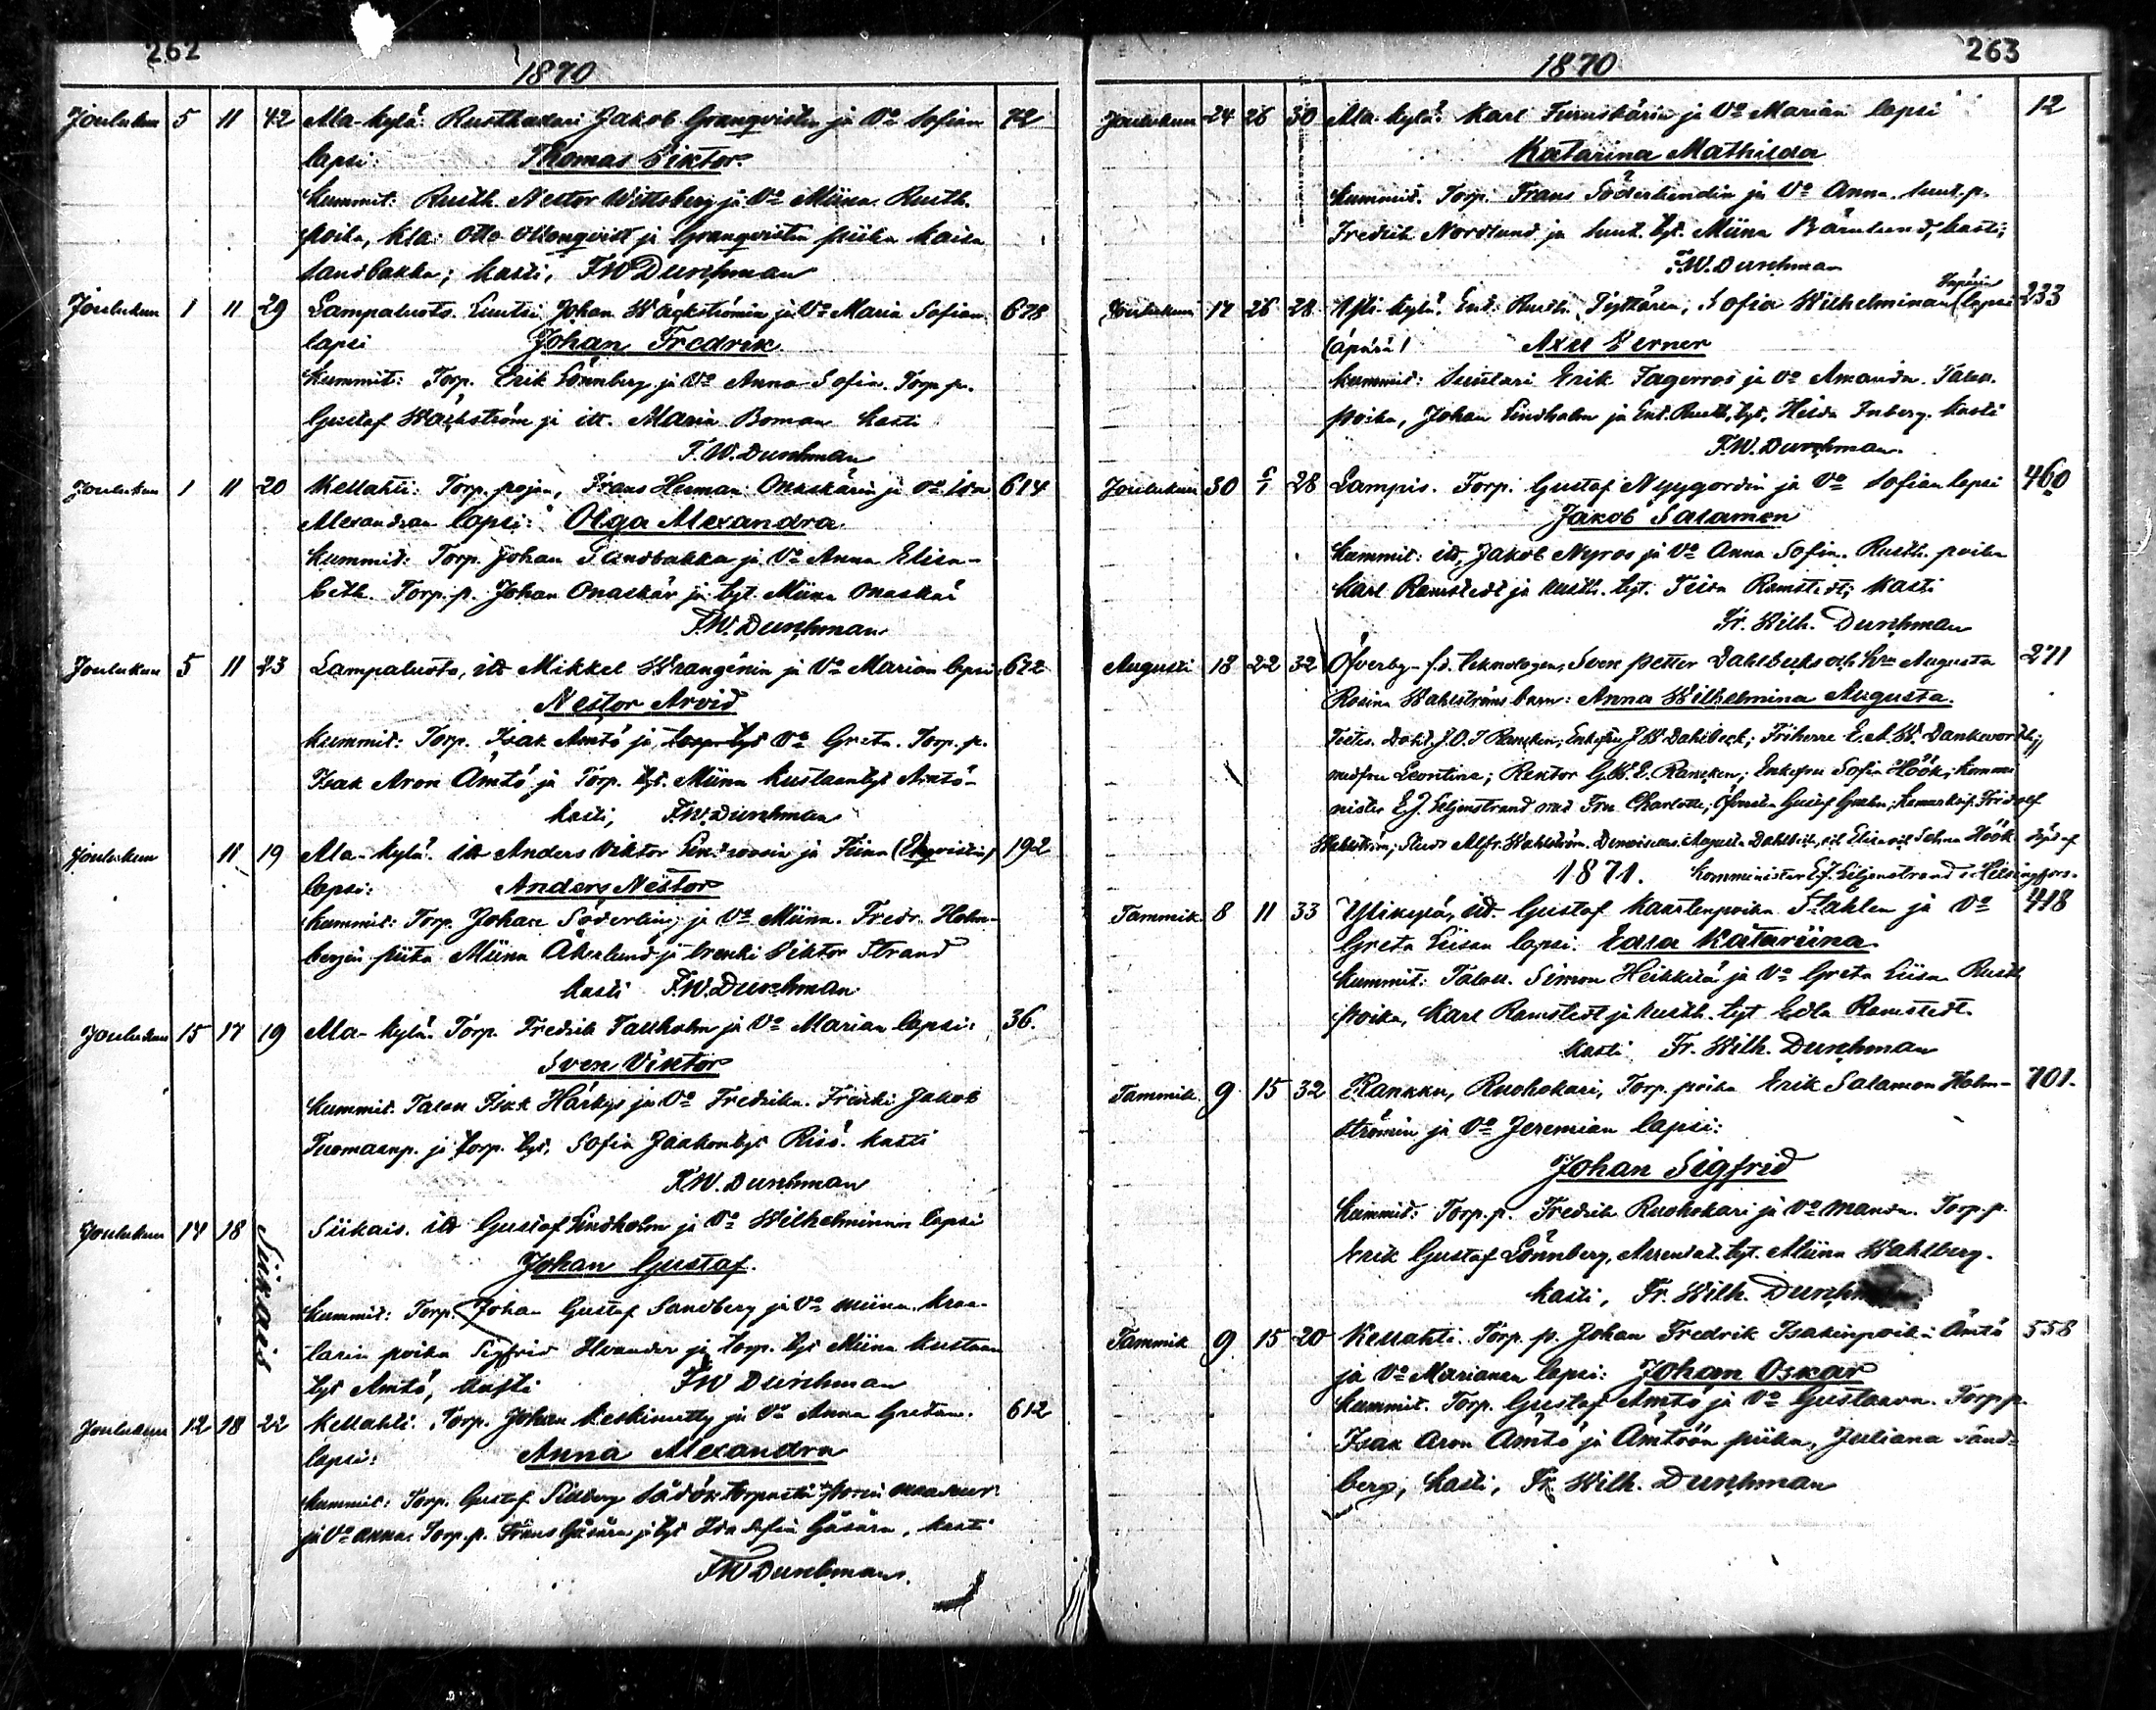 262
1870
Joulukun 5 11 42 Ala-kylä: Rusthollari Jakob Granqvistin ja Vo Sofian 72
lapsi: Thomas Viktor.
Kummit: Rusth. Nestor Wittsberg ja Vo Miina. Rusth.
poika, Otto ja Granqvistin piika Kaisa
Sandbakka; kasti, F.W. Durchman
Joulukun 1 11 29 Lampaluoto. Luutsi Johan Wäckströmin ja Vo Maria Sofian 678
lapsi Johan Fredrik.
Kummit: Torp. Erik Lönnberg ja Vo Anna Sofia. Torp. p.
Gustaf Wäckström ja itt. Maria Boman kasti
F.W. Durchman
Joulukun 1 11 20 Kellahti: Torp. pojan, Frans Herman Onaskärin ja vo Ida 614
Alexandran lapsi: Olga Alexandra.
Kummit: Torp. Johan Sandbakka ja Vo Anna Elisa-
beth. Torp. p. Johan Onaskär ja tyt. Miina Onaskär
F.W. Durchman
Joulukun 5 11 43 Lampaluoto, its Mikkel Wrangénin ja Vo Marian lapsi 672
Nestor Arvid
Kummit: Torp. Isak Ämtö ja torp. tyt Vo Greta. Torp. p.
Isak Aron Ämtö ja Torp. tyt. Miina Kustaantyt Ämtö-
kasti, F.W. Durchman
Joulukun 11 19 Ala-kylä. its Anders Viktor Lindroosin ja Fiina 192
lapsi: Anders Nestor
Kummit: Torp. Johan Söderling ja Vo Miina. Fredr. Holm-
bergin piika Miina Åkerlund ja trenki Viktor Strand
kasti F.W. Durchman
Joulukun 15 17 19 Ala-kylä. Torp. Fredrik Tallholm ja Vo Marian lapsi: 36.
Sven Viktor
Kummit: Talon Isak Härkys ja Vo Fredrika. Trenki Jakob
Tuomaanp. ja torp. tyt. Sofia Jaakontyt Risö. kasti
F.W. Durchman
Joulukun 17 18 Siikais Siikais. its Gustaf Lindholm ja Vo Wilhelminan lapsi
Johan Gustaf.
Kummit: Torp. Johan Gustaf Sandberg ja Vo Miina.
poika Sigfrid ja torp. tyt Miina Kustaan
tyt Ämtö, kasti F.W. Durchman
Joulukun 12 18 22 Kellahti. Torp. Johan Keskimetty ja Vo Anna Gretan. 612
lapsi: Anna Alexandra
Kummit: Torp. Gustaf
ja Vo Anna. Torp. p. Frans Gäsära ja tyt Ida Sofia Gäsära, kasti
F.W. Durchman.
263
1870
Joulukun 24 26 30 Ala-kylä. Karl Furuskärin ja Vo Marian lapsi 12
Katarina Mathilda
Kummit. Torp. Frans Söderlundin ja Vo Anna. p.
Fredrik Nordlund ja tyt. Miina Bärnlund; kasti;
F.W. Durchman
Joulukun 17 26 28 Yli-kylä. Ent. Rusth. Tyttären, Sofia Wilhelminan lapsi 233
(äpärä) Axel Verner
Kummit: Erik Fagerros ja Vo Amanda. Talon.
poika, Johan Lindholm ja Ent. Rusth. tyt. Hilda Inberg. kasti
F.W. Durchman
Joulukun 30 6/1 28 Lampis. Torp. Gustaf Nyygordin ja Vo Sofian lapsi 460
Jakob Salamon
Kummit: its, Jakob Nyros ja Vo Anna Sofia. Rusth. poika
Karl Ramstedt ja rusth. tyt. Ramstedt; kasti
Fr. Wilh. Durchman
Augusti 18 22 32 Öfverby- f.d. teknologen, Sven Petter Dahlbecks och hu Augusta 271
Rosina Wahlströms barn: Anna Wilhelmina Augusta.
Testes. Dokt. J.O.I Rancken; Enkefru J W Dahlbeck; Friherre E.A.W. Dankwordt;
med fru Leontina; Rektor G.W.E. Rancken; Enkefru Sofia Höök; Kommi
nister E.J. Liljenstrand med Fru Charlotte; Gustaf
Wahlström; Stud. Alfr. Wahlström. Demoiselles: Augusta Dahlbeck, Selma Höök. döpt af
1871. Komminister E.J. Liljenstrand i Helsingfors.
Tammik 8 11 33 Ylikylä, its. Gustaf Kaarlenpoika Stahlen ja Vo 418
Greta Liisan lapsi: Edla Katariina.
Kummit: Talon. Simon Heikkilä ja Vo Greta Liisa Rusth.
poika, Karl Ramstedt ja rusth. tyt Edla Ramstedt.
kasti Fr. Wilh. Durchman
Tammik. 9 15 32 Rankku, Ruohokari, Torp. poika Erik Salamon Holm- 701.
strömin ja Vo Jeremian lapsi:
Johan Sigfrid
Kummit: Torp. p. Fredrik Ruohokari ja Vo Manda. Torp. p.
Erik Gustaf Lönnberg, Arrendat. tyt. Miina Wahlberg.
kasti, Fr. Wilh. Durchman
Tammik 9 15 20 Kellahti. Torp. p. Johan Fredrik Isakinpoika Ämtö 558
ja Vo Marianan lapsi: Johan Oskar
Kummit. Torp. Gustaf Ämtö ja Vo Gustaava. Torp p.
Isak Aron Ämtö ja Ämtöön piika, Juliana Sand-
berg, kasti, Fr. Wilh. Durchman